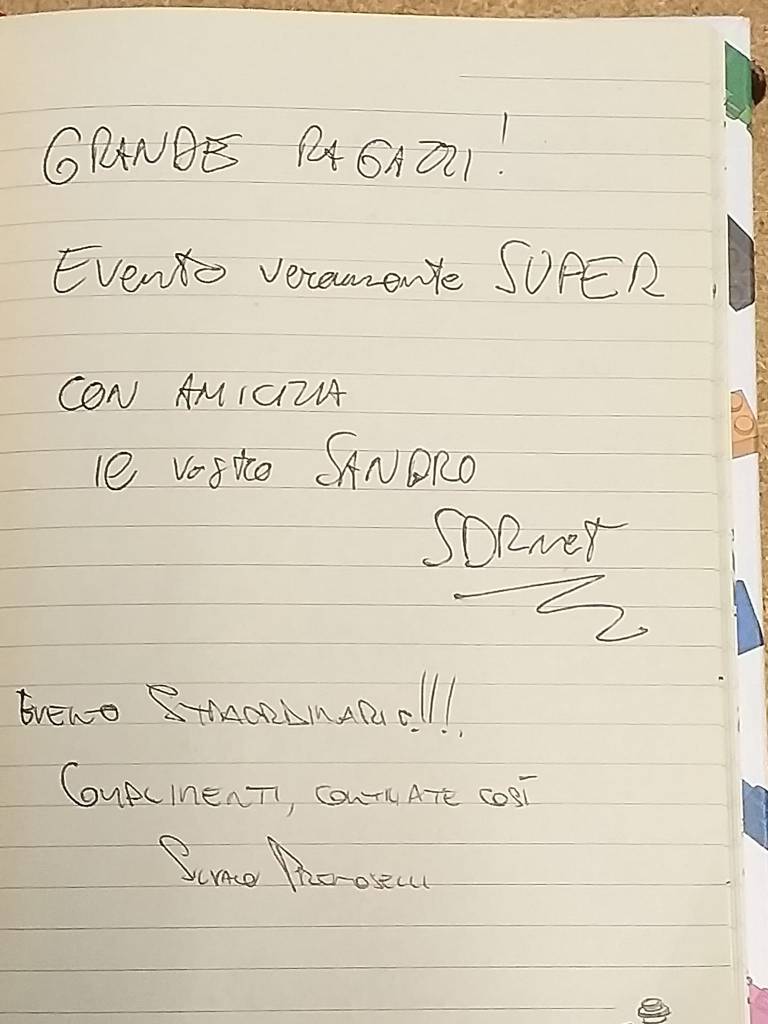 GRANDE RAGAZZI!
Evento veramente SUPER
CON AMICIZIA
il vostro SANDRO
SDRnet
EVENTO STRAORDINARIO!!!
COMPLIMENTI, CONTINUATE COSÌ